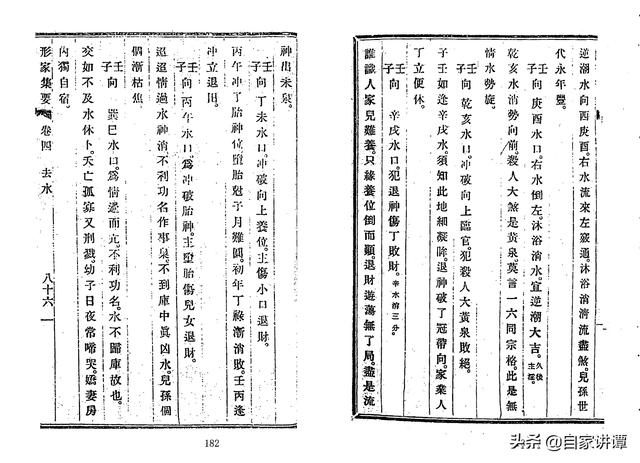 逆潮水向西庚酉。右水流來左竅通。沐浴消濟流盡煞。兒孫世
代永年豐。
壬子向 庚酉水口。右水倒左。沐浴消水宜逆潮大吉。久後主淫。
乾亥水消勢向前。殺人大煞是黃泉。莫言一六同宗格。此是無
情水勢旋。
壬子向 乾亥水口。冲破向上臨官。犯殺人大黃泉敗絕。
子壬如逢辛戌水。須知此地細凝眸。退神破了冠帶向。家業人
丁立便休。
壬子向 辛戌水口。犯退神傷丁敗財。辛水消三分。
誰識人家兒難養。只緣養位倒而顛。退財遊蕩無了局。盡是流
神出未泉。
壬子向 丁未水口。冲破向上養位。主傷小口退財。
丙午冲丁胎神位。墮胎尅子月難圓。初年丁祿漸消敗。壬丙逢
冲立退田。
壬子向 丙午水口。爲冲破胎神。主墮胎傷兒女退財。
迢迢情過水神消。不利功名作事梟。不到庫中眞凶水。兒孫個
個漸枯焦。
壬子向 巽巳水口。爲情過而亢。不利功名。水不歸庫故也。
交如不及水休卜。夭亡孤寡又刑戮。幼子日夜常啼哭。嬌妻房
內獨自宿。
形家集要 卷四 去水 八十六
182
头条 @自家讲谭